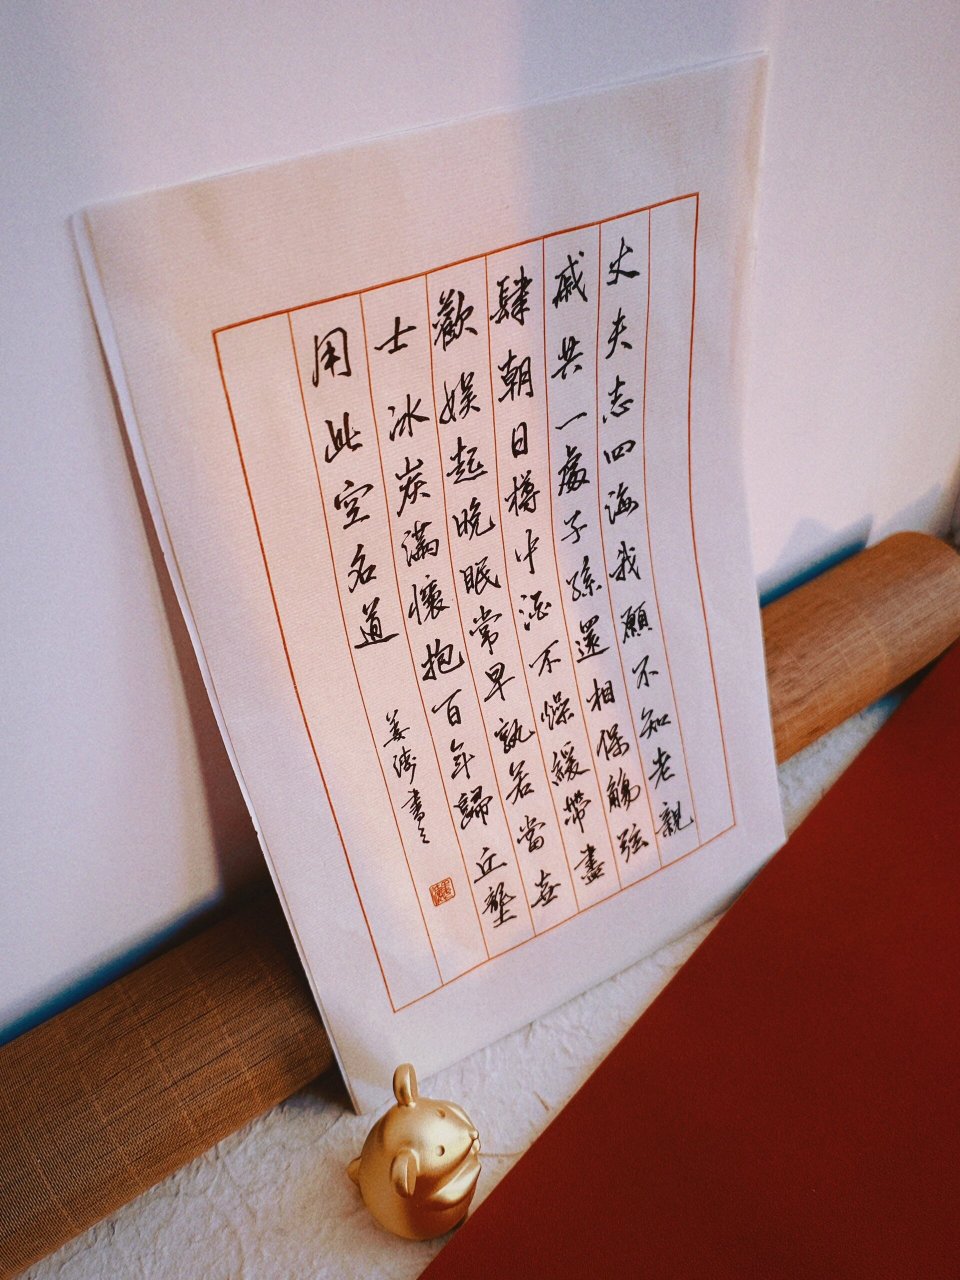 丈夫志四海我願不知老親
戚共一處子孫還相保觴弦
肆朝日樽中酒不燥緩帶盡
歡娛起晚眠常早孰若當世
士冰炭滿懷抱百年歸丘壟
用此空名道
姜涛書之